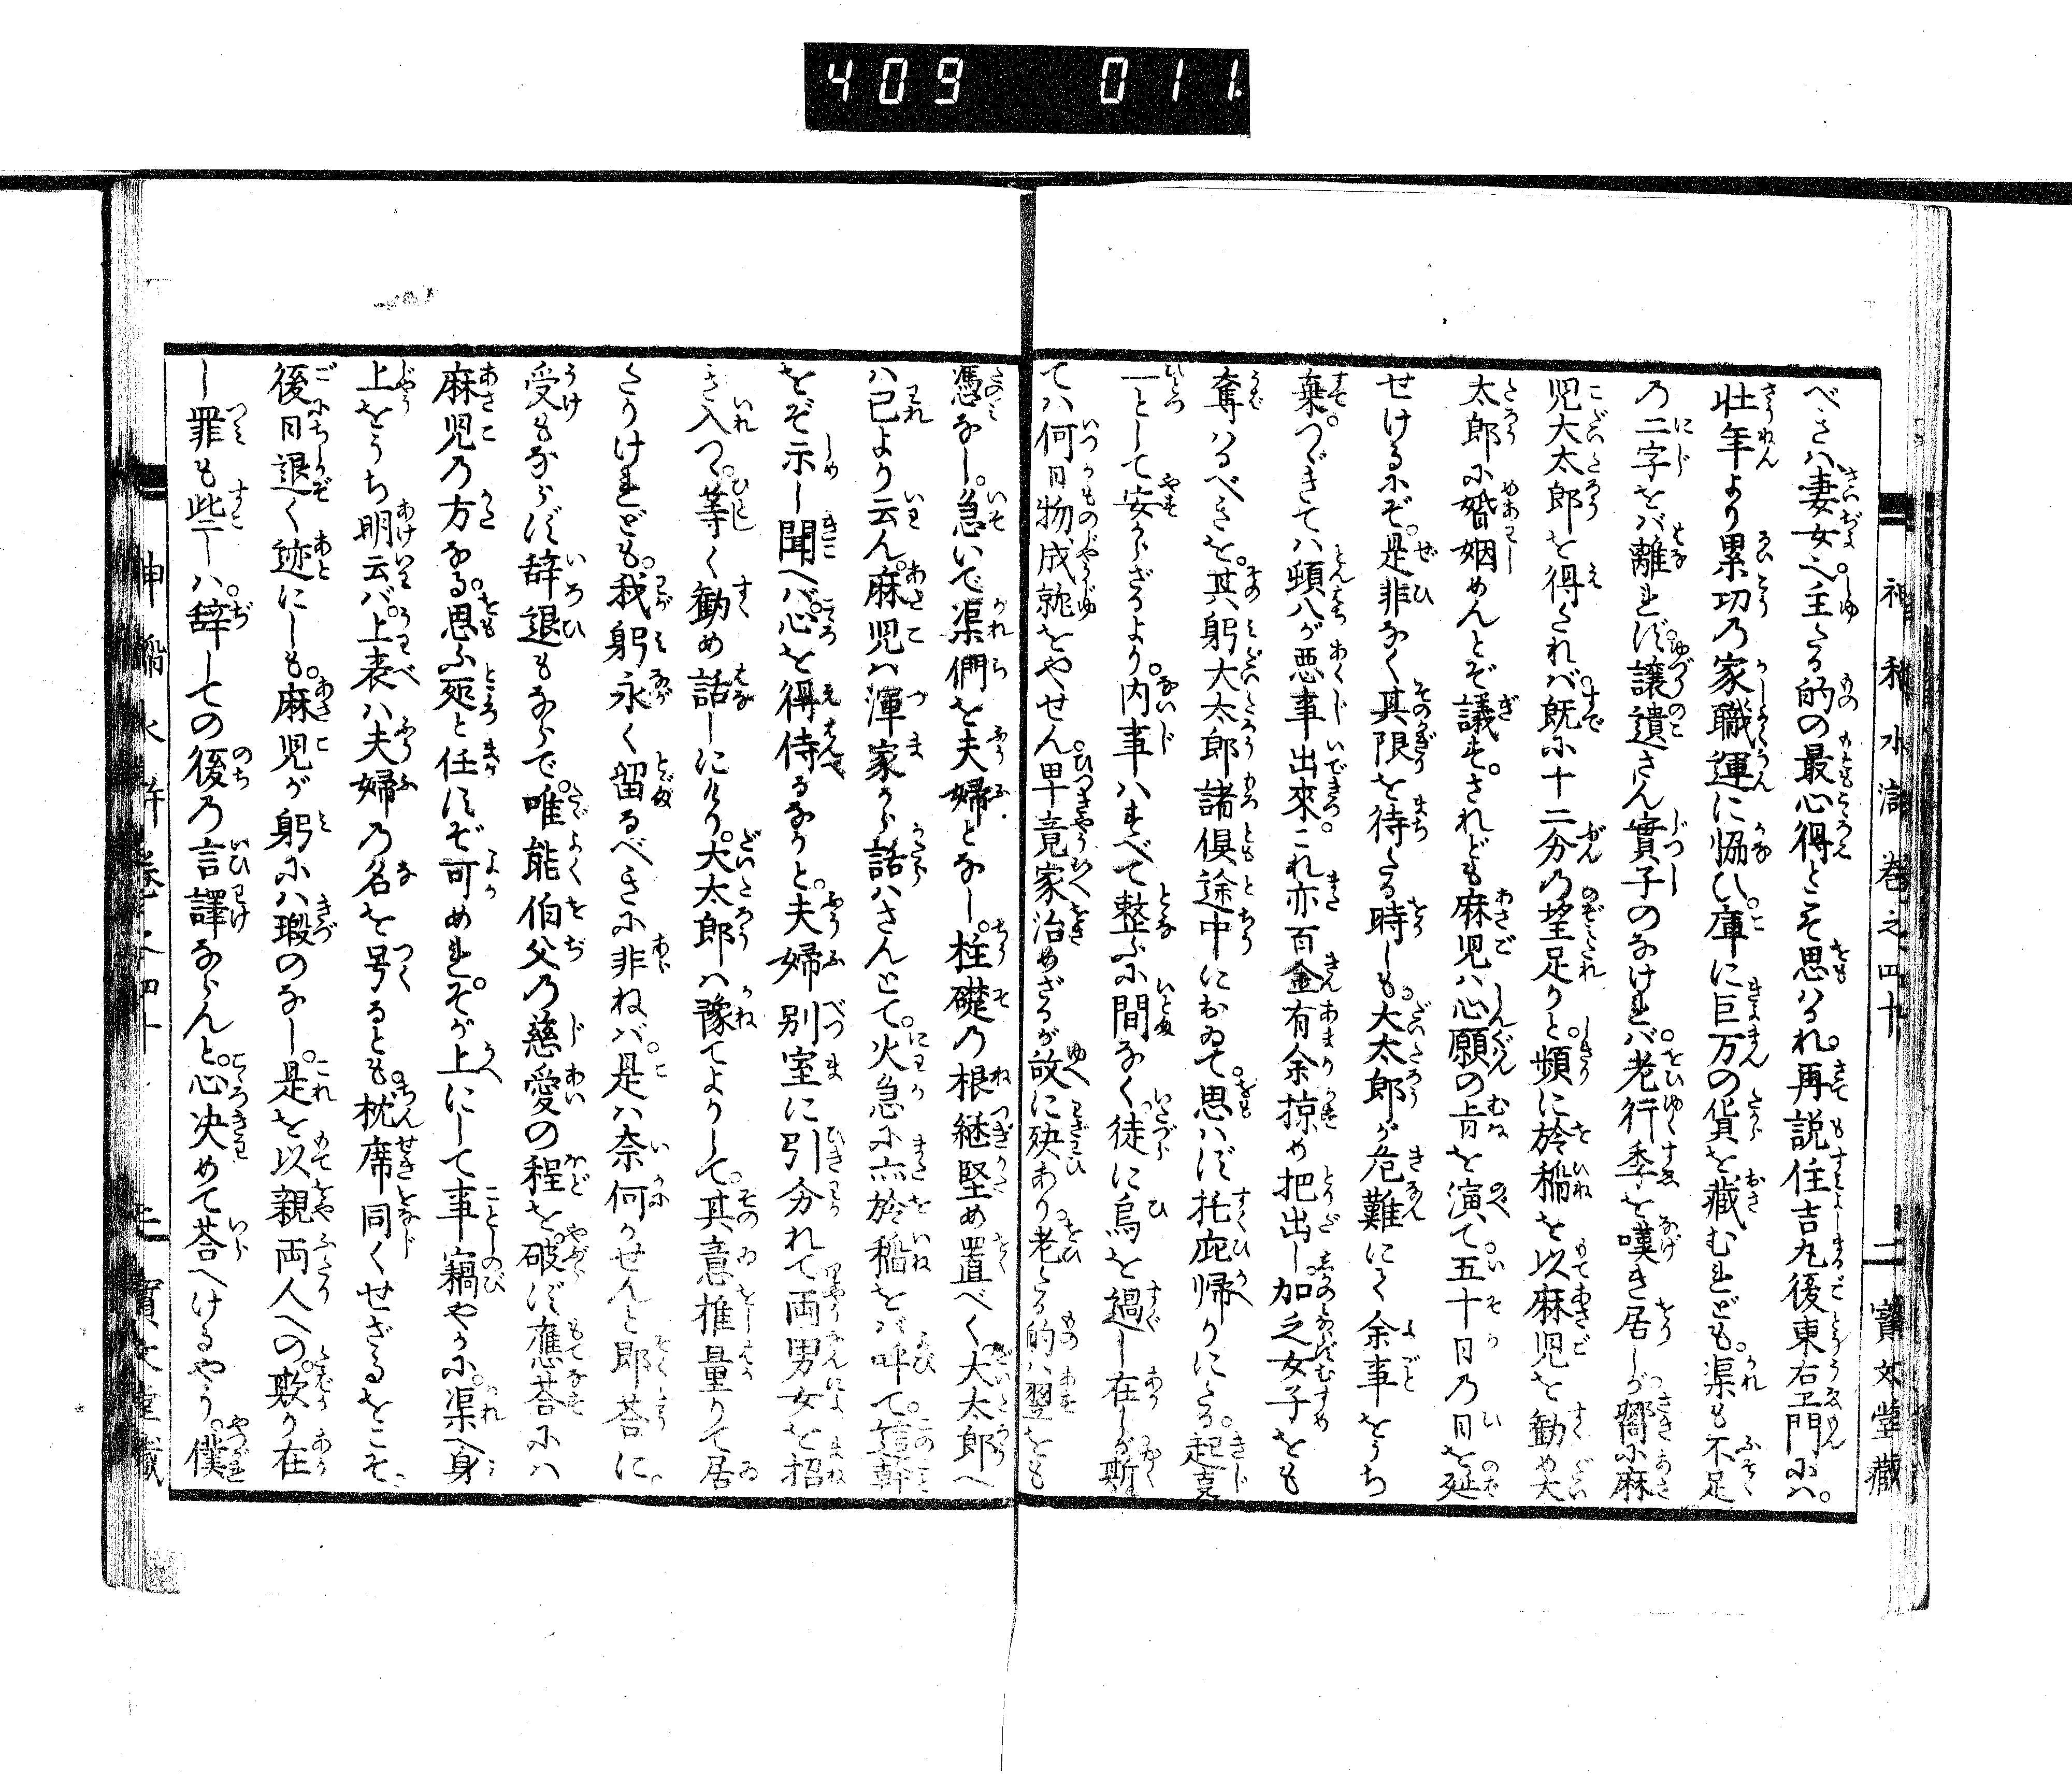 409 011
神稲水滸巻之四十 二 寳文堂藏
べきハ妻女へ主たる的の最心得とこそ思ハるれ。再説住吉丸後東右ヱ門にハ。
壮年より累功の家職運に恊ひ。庫に巨万の貨を藏むれども。渠も不足
の二字をバ離れず。譲遺さん實子のなけれバ。老行季を嘆き居しが。嚮に麻
児大太郎を得たれバ。既に十二分の望足りと。頻に於稲を以麻児を勧め大
太郎に婚姻めんとぞ議す。されども麻児ハ心願の旨を演て。五十日の日を延
せけるにぞ。是非なく其限を待たる時しも。大太郎が危難にて余事をうち
棄。つゞきてハ頓八が悪事出來。これ亦百金有余掠め把出し。加之女子をも
奪ハるべきを。其躬大太郎諸倶途中において。思ハず托庇帰りにたる。起憂
一として安からざるより。内事ハすべて整ふに間なく。徒に烏を過し在しが。斯
てハ何日物成就をやせん。畢竟家治めざるが故に殃あり。老たる的ハ翌をも
憑なし。急いで渠們を夫婦となし。柱礎の根継堅め置べく。大太郎へ
ハ已より云ん。麻児ハ渾家から話ハさんとて。火急に亦於稲をバ呼て。這幹
をぞ示し聞へバ。心を得侍るなりと。夫婦別室に引分れて両男女を招
き入つ。等く勧め話しにけり。大太郎ハ豫てよりして。其意推量りて居
たりけれども。我躬永く留るべきに非ねバ。是ハ奈何かせんと即荅に
受もならず辞退もならで。唯能伯父の慈愛の程を。破らず應荅にハ
麻児の方なる。思ふ処と任ずぞ可めれ。そが上にして事竊やかに。渠へ身
上をうち明云バ。上表ハ夫婦の名を号るとも。枕席同くせざるをこそ
後日退く迹にしも。麻児が躬にハ瑕のなし。是を以親両人への。欺り在
し罪も些しハ。辞しての後の言譯ならんと。心决めて荅へけるやう。僕
神稲水滸巻之四十 二 寳文堂藏